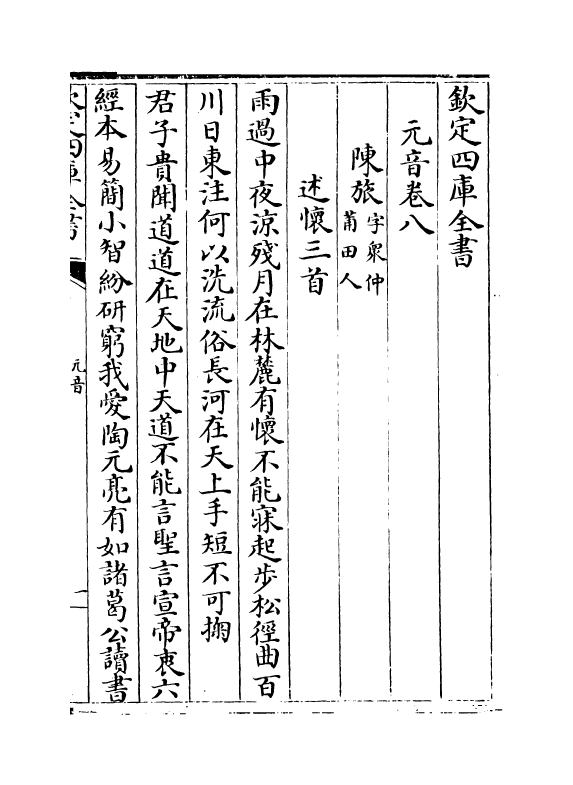 欽定四庫全書
元音卷八
陳旅字衆仲
莆田人
述懷三首
雨過中夜涼殘月在林麓有懷不能寐起步松徑曲百
川日東注何以洗流俗長河在天上手短不可掬
君子貴聞道道在天地中天道不能言聖言宣帝衷六
經本易簡小智紛研窮我愛陶元亮有如諸葛公讀書
欽定四庫全書
元音
一